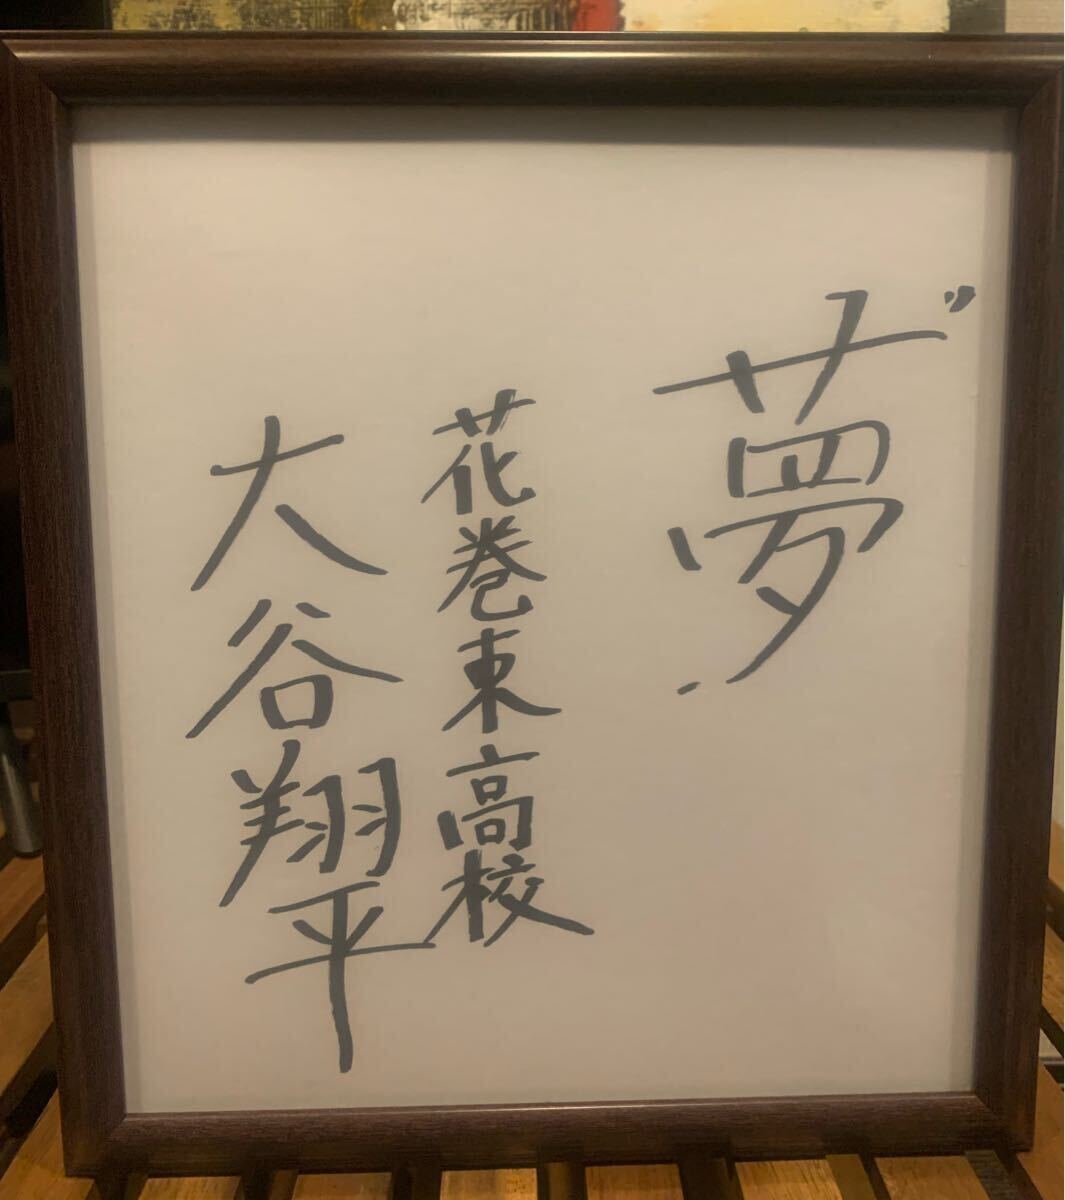 〝夢〟
花巻東高校
大谷翔平